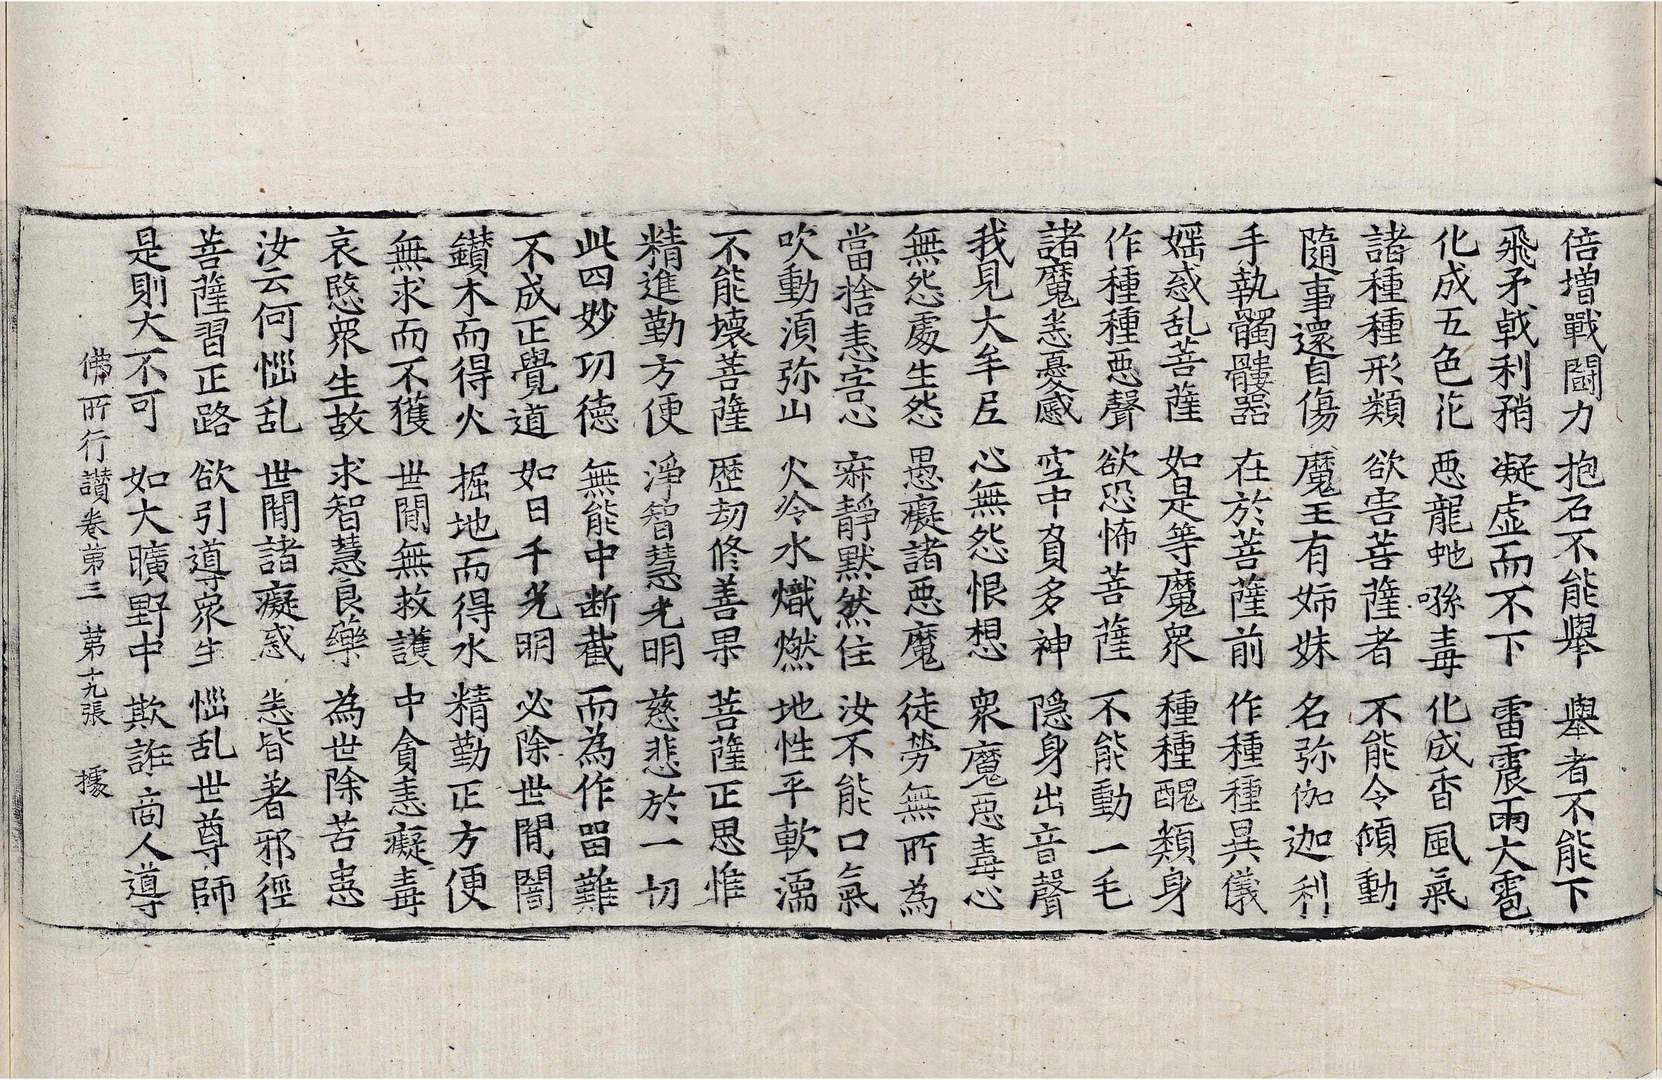 倍增戰鬪力　抱石不能舉　舉者不能下
飛矛戟利矟　凝虛而不下　雷震雨大雹
化成五色花　惡龍蛇噀毒　化成香風氣
諸種種形類　欲害菩薩者　不能令傾動
隨事還自傷　魔王有姉妹　名弥伽迦利
手執髑髏器　在於菩薩前　作種種異儀
婬惑乱菩薩　如是等魔衆　種種醜類身
作種種惡聲　欲恐怖菩薩　不能動一毛
諸魔悉憂慼　空中負多神　隱身出音聲
我見大牟尼　心無怨恨想　衆魔惡毒心
無怨處生怨　愚癡諸惡魔　徒勞無所為
當捨恚害心　寂靜默然住　汝不能口氣
吹動湏弥山　火冷水熾燃　地性平軟濡
不能壞菩薩　歷劫修善果　菩薩正思惟
精進勤方便　淨智慧光明　慈悲於一切
此四妙功德　無能中断截　而為作留難
不成正覺道　如日千光明　必除世間闇
鑽木而得火　掘地而得水　精勤正方便
無求而不獲　世間無救護　中貪恚癡毒
哀愍衆生故　求智慧良藥　為世除苦患
汝云何惱乱　世間諸癡惑　悉皆著邪徑
菩薩習正路　欲引導衆生　惱乱世尊師
是則大不可　如大曠野中　欺誑商人導
佛所行讚卷第三　第十九張　據